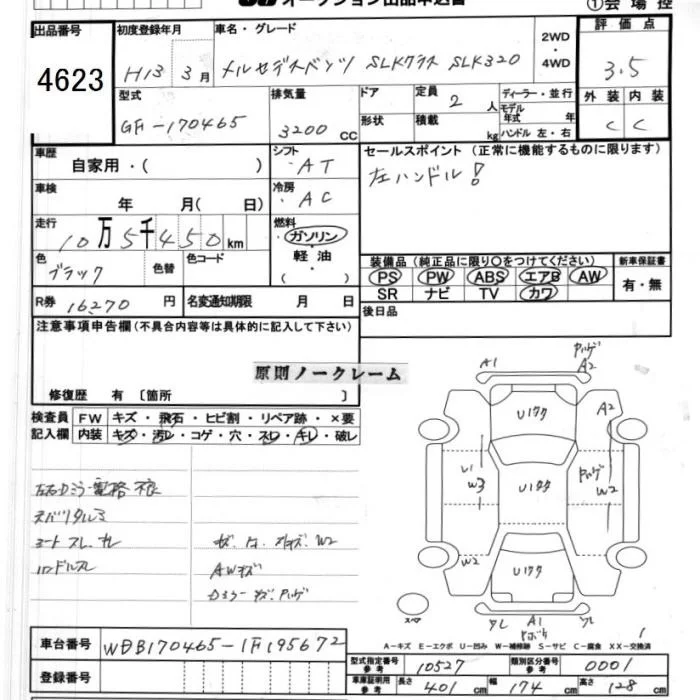 オークション出品申込書 ①会場控
出品番号 初度登録年月 車名・グレード 2WD・4WD 評価点
4623 H13 3月 メルセデスベンツ SLKクラス SLK320 3.5
型式 排気量 ドア 定員 2 人 ディーラー・並行 外装 内装
GF-170465 3200 CC 形状 積載 kg モデル年式 年 ハンドル 左・右 C C
車歴 自家用・( ) シフト AT セールスポイント (正常に機能するものに限ります)
車検 年 月( 日) 冷房 AC 左ハンドル!
走行 10万5千450km 燃料 ガソリン・軽油・( )
色 ブラック 色替 色コード 装備品 (純正品に限り○をつけてください) 新車保証書
PS PW ABS エアB AW 有・無
SR ナビ TV カワ
R券 16270 円 名変通知期限 月 日 後日品
注意事項申告欄 (不具合内容等は具体的に記入して下さい)
原則ノークレーム
修復歴 有 〔箇所 〕
検査員記入欄 FW キズ・飛石・ヒビ割・リペア跡・×要
内装 キズ・汚レ・コゲ・穴・スレ・キレ・破レ
A1 A2
Uワク A2
W3 Uワク W2
W2 Uワク
A1
スペア
AWキズ
車台番号 WDB170465-1F195672
A-キズ E-エクボ U-凹み W-補修跡 S-サビ C-腐食 XX-交換済
登録番号 型式指定番号参考 10527 類別区分番号参考 0001
車庫証明用参考 長さ 401 cm 幅 174 cm 高さ 128 cm